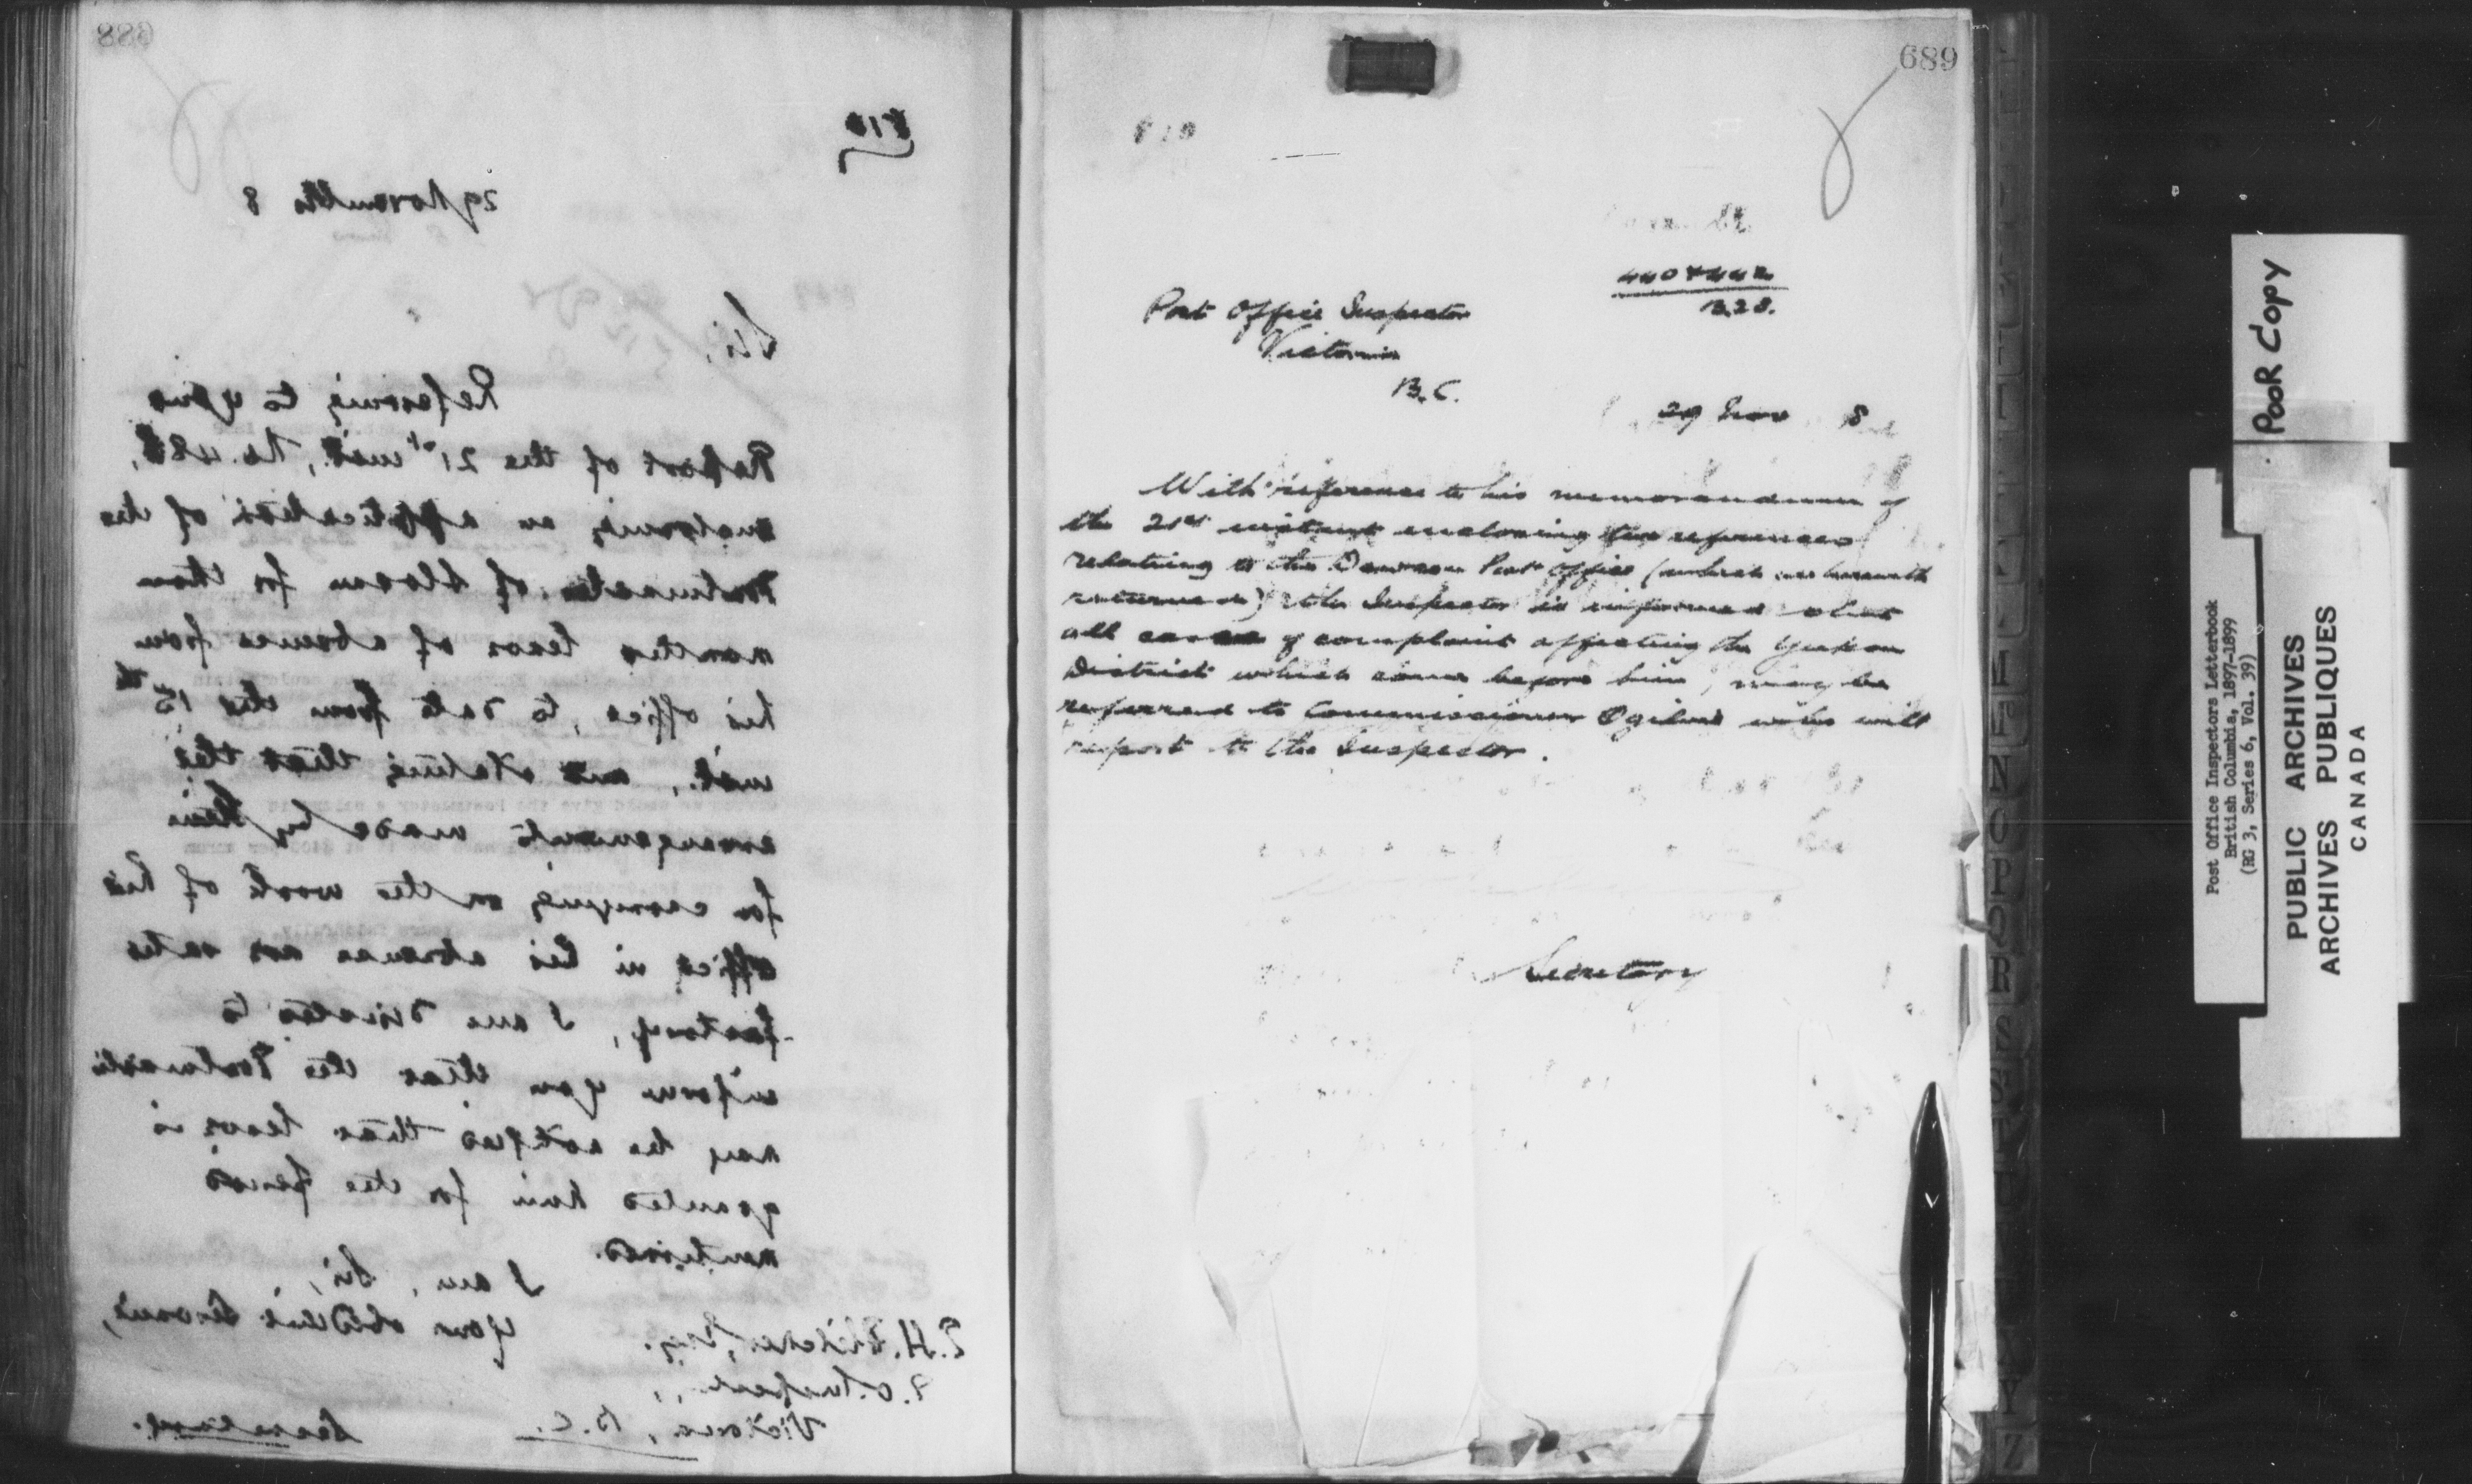 688
810
29 November 8
Sir,
Referring to your
Report of the 21st inst., No. 488,
enclosing an application of the
Postmaster of Slocan for three
months leave of absence from
his office, to date from the 15th
inst., and stating that the
arrangements made by him
for carrying on the work of his
office in his absence are satis
factory, I am directed to
inform you that the Postmaster
may be notified that leave is
granted him for the period
mentioned.
I am, Sir,
Your obedient Servant,
E.H. Fletcher, Esq.
P.O. Inspector,
Victoria, B.C.
Secretary.
689
810
440 & 442
B.28.
Post Office Inspector
Victoria
B.C.
29 Nov 8
With reference to his memorandum of
the 21st instant enclosing two references
relating to the Dawson Post Office (which are herewith
returned) the Inspector is informed that
all cases of complaint affecting the Yukon
District which come before him, may be
referred to Commissioner Ogilvie who will
report to the Inspector.
Secretary
POOR COPY
Post Office Inspectors Letterbook
British Columbia, 1897-1899
(RG 3, Series 6, Vol. 39)
PUBLIC ARCHIVES
ARCHIVES PUBLIQUES
CANADA